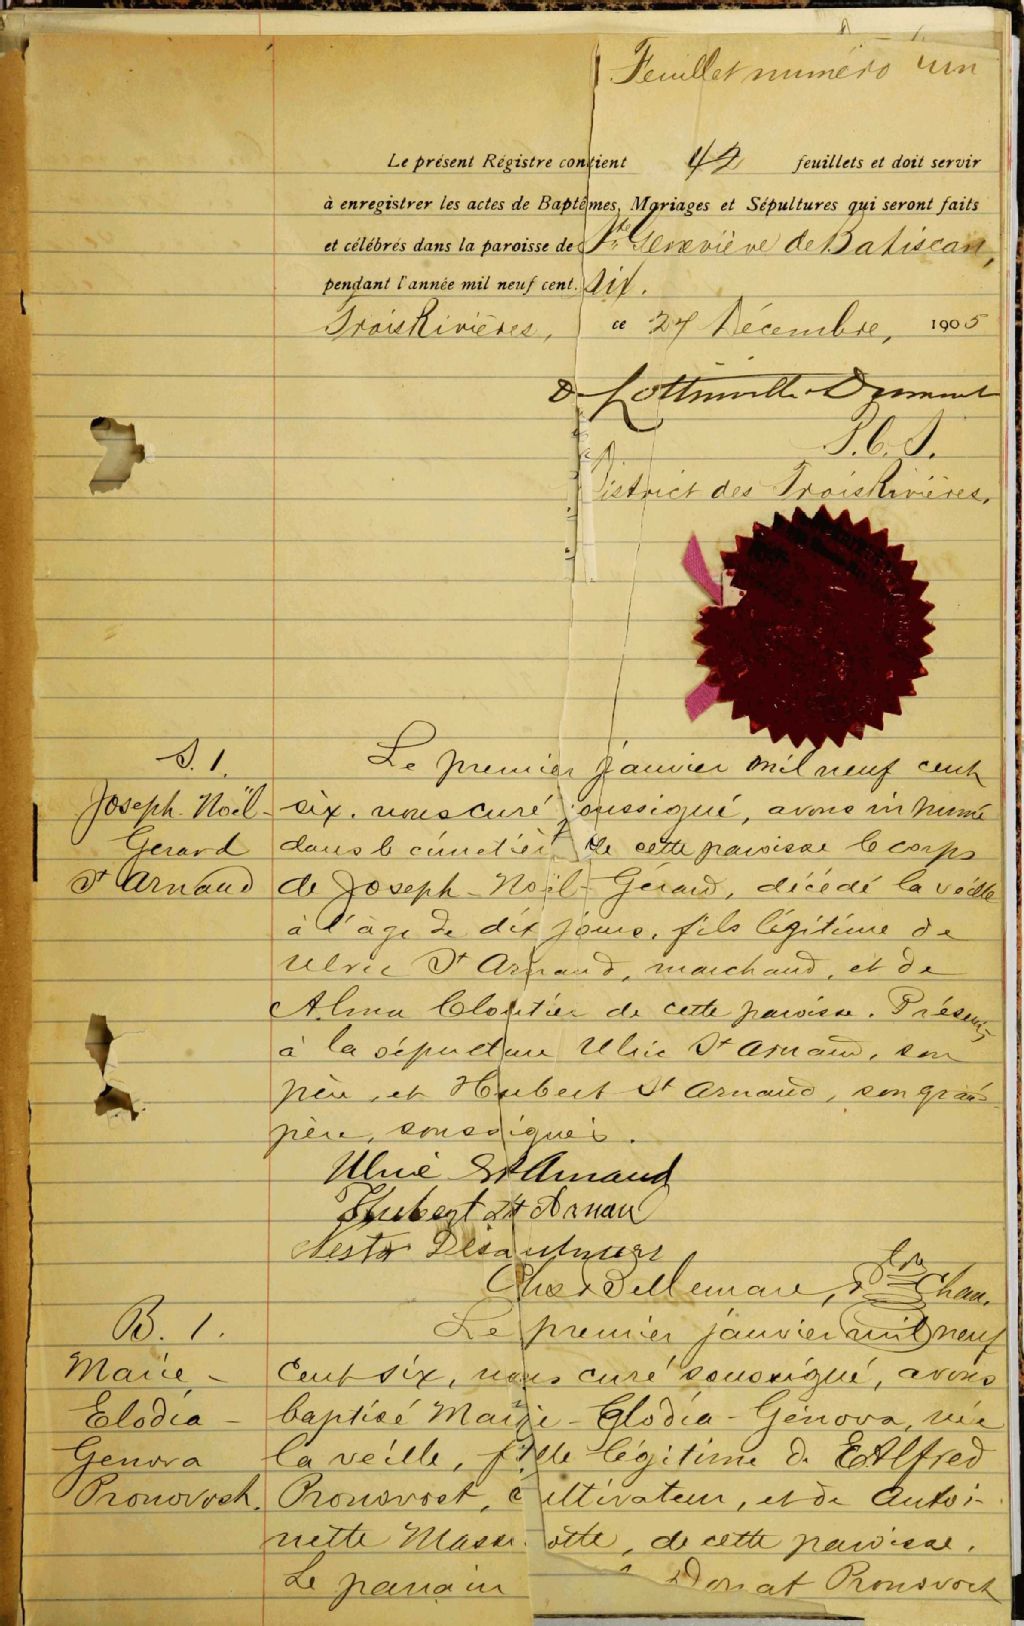 Feuillet numéro un
Le présent Régistre contient 42 feuillets et doit servir
à enregistrer les actes de Baptêmes, Mariages et Sépultures qui seront faits
et célébrés dans la paroisse de Ste Geneviève de Batiscan,
pendant l'année mil neuf cent. six.
Trois Rivières, ce 27 Décembre, 1905
P. C. S.
District des Trois Rivières.
S. 1.
Joseph-Noël-
Gerard
St Arnaud
Le premier janvier mil neuf cent
six, nous curé soussigné, avons inhumé
dans le cimetière de cette paroisse le corps
de Joseph-Noël-Gérard, décédé la veille
à l'âge de dix jours, fils légitime de
Ulric St Arnaud, marchand, et de
Alma Cloutier de cette paroisse. Présents
à la sépulture Ulric St Arnaud, son
père, et Hubert St Arnaud, son grand-
père, soussignés.
Ulric St Arnaud
Hubert St Arnau
Nestor Désaulniers
Chs Bellemare, ptre Chan.
B. 1.
Marie-
Elodia-
Genova
Pronovost.
Le premier janvier mil neuf
cent six, nous curé soussigné, avons
baptisé Marie-Elodia-Génova, née
la veille, fille légitime de E Alfred
Pronovost, cultivateur, et de Antoi-
nette Massicotte, de cette paroisse.
Le parrain Donat Pronovost